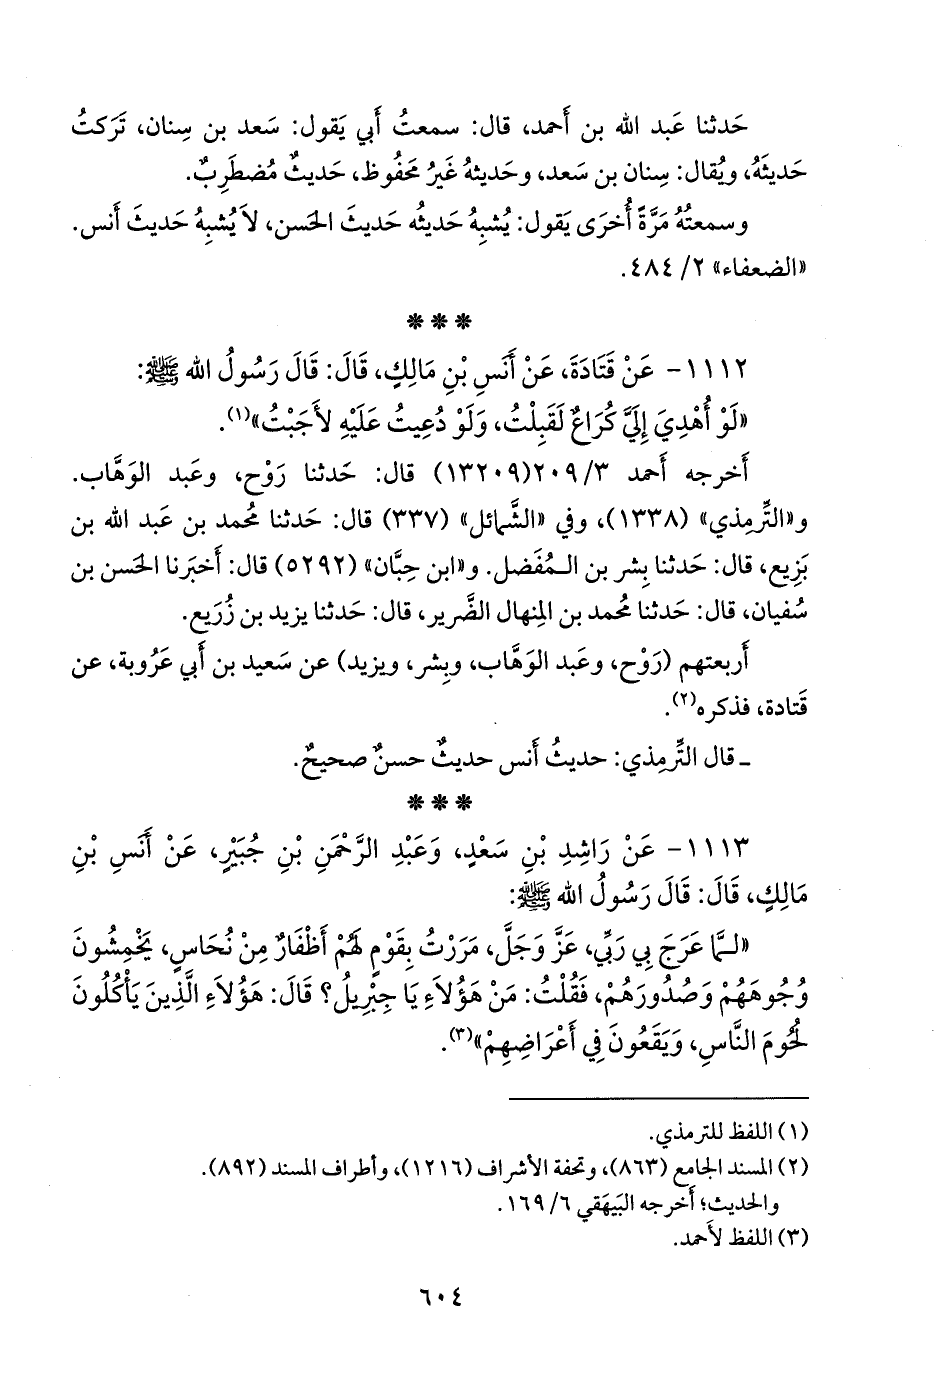 حَدثنا عَبد الله بن أَحمد، قال: سمعتُ أَبي يَقول: سَعد بن سِنان، تَركتُ
حَديثَهُ، ويُقال: سِنان بن سَعد، وحَديثهُ غَيرُ مَحفُوظ، حَديثٌ مُضطَرِبٌ.
وسمعتُهُ مَرَّةً أُخرَى يَقول: يُشبِهُ حَديثُه حَديثَ الحَسن، لاَ يُشبِهُ حَديثَ أَنس.
«الضعفاء» ٢/ ٤٨٤.
* * *
١١١٢- عَنْ قَتَادَةَ، عَنْ أَنَسِ بْنِ مَالِكٍ، قَالَ: قَالَ رَسُولُ الله ﷺ:
«لَوْ أُهْدِيَ إِلَيَّ كُرَاعٌ لَقَبِلْتُ، وَلَوْ دُعِيتُ عَلَيْهِ لأَجَبْتُ»(١).
أَخرجه أَحمد ٣/ ٢٠٩(١٣٢٠٩) قال: حَدثنا رَوْح، وعَبد الوَهَّاب.
و«التِّرمِذي» (١٣٣٨)، وفي «الشَّمائل» (٣٣٧) قال: حَدثنا مُحمد بن عَبد الله بن
بَزِيع، قال: حَدثنا بِشر بن الـمُفَضل. و«ابن حِبَّان» (٥٢٩٢) قال: أَخبَرنا الحَسن بن
سُفيان، قال: حَدثنا مُحمد بن المِنهال الضَّرير، قال: حَدثنا يزيد بن زُرَيع.
أَربعتهم (رَوْح، وعَبد الوَهَّاب، وبِشر، ويزيد) عن سَعيد بن أَبي عَرُوبة، عن
قَتادة، فذكره(٢).
ـ قال التِّرمِذي: حديثُ أَنس حديثٌ حسنٌ صحيحٌ.
* * *
١١١٣- عَنْ رَاشِدِ بْنِ سَعْدٍ، وَعَبْدِ الرَّحْمَنِ بْنِ جُبَيْرٍ، عَنْ أَنَسِ بْنِ
مَالِكٍ، قَالَ: قَالَ رَسُولُ الله ﷺ:
«لـمَّا عَرَجَ بِي رَبِّي، عَزَّ وَجَلَّ، مَرَرْتُ بِقَوْمٍ لَهُمْ أَظْفَارٌ مِنْ نُحَاسٍ، يَخْمِشُونَ
وُجُوهَهُمْ وَصُدُورَهُمْ، فَقُلْتُ: مَنْ هَؤُلاَءِ يَا جِبْرِيلُ؟ قَالَ: هَؤُلاَءِ الَّذِينَ يَأْكُلُونَ
لُحُومَ النَّاسِ، وَيَقَعُونَ فِي أَعْرَاضِهِمْ»(٣).
(١) اللفظ للترمذي.
(٢) المسند الجامع (٨٦٣)، وتحفة الأشراف (١٢١٦)، وأطراف المسند (٨٩٢).
والحديث؛ أَخرجه البَيهَقي ٦/ ١٦٩.
(٣) اللفظ لأَحمد.
٦٠٤